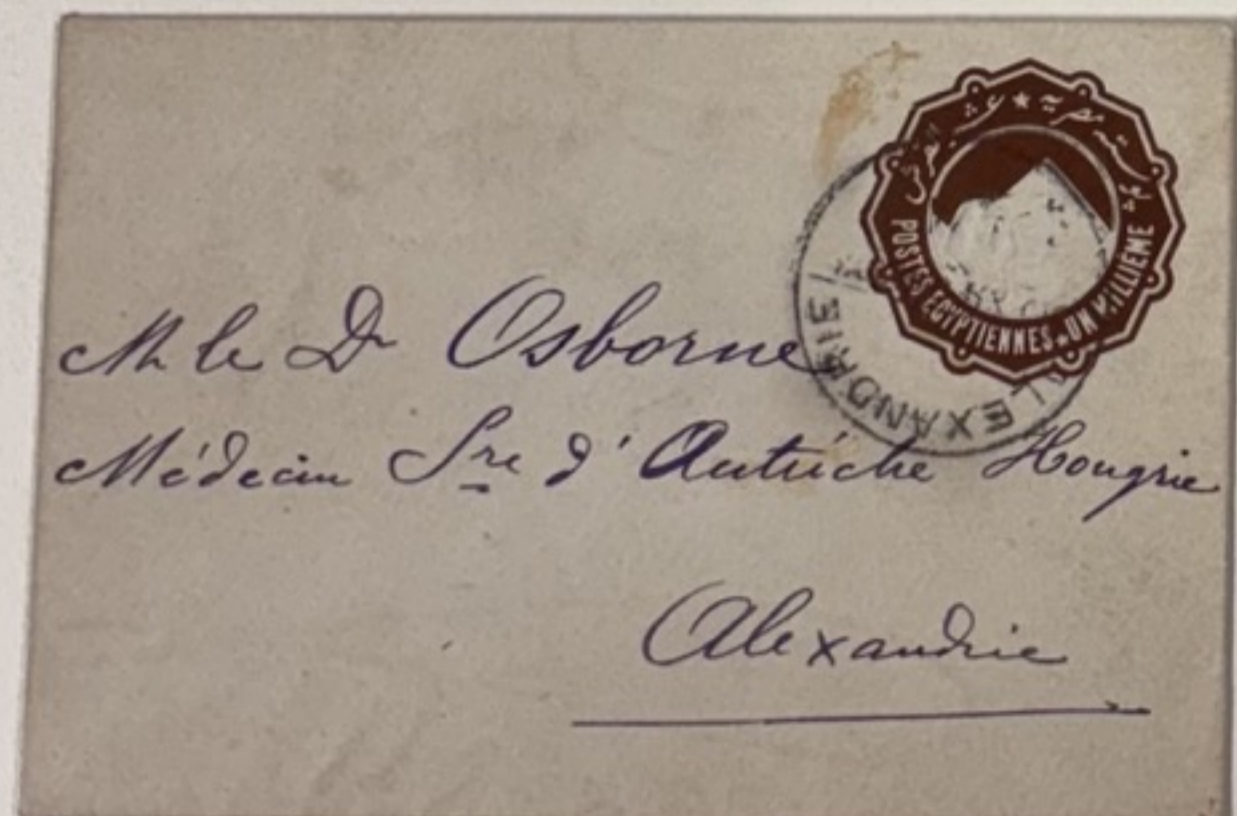 POSTES EGYPTIENNES UN MILLIEME
ALEXANDRIE
M le Dr Osborne
Médecin Sre d'Autriche Hongrie
Alexandrie